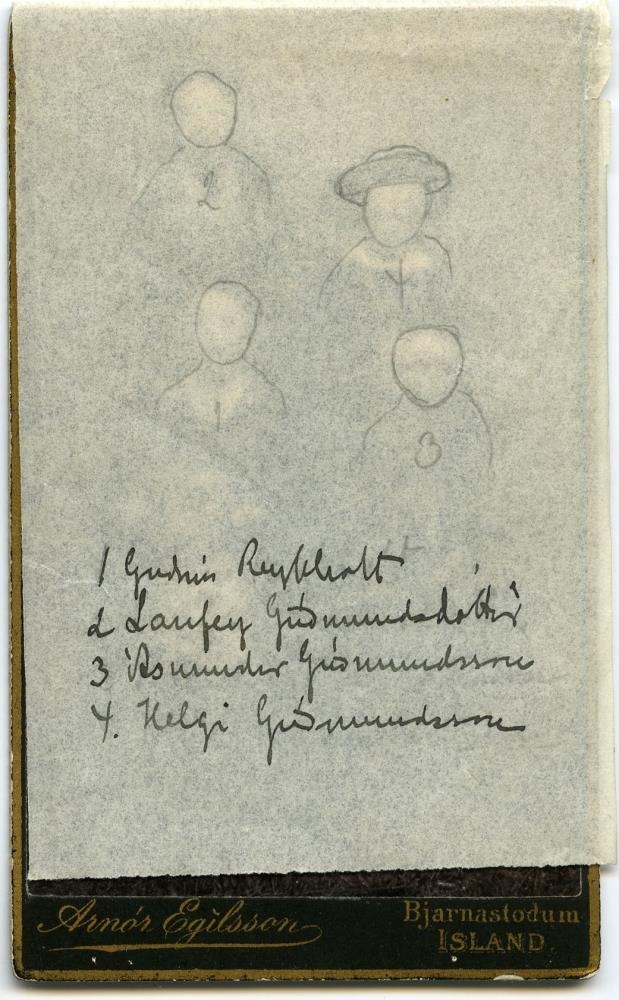 2
4
1
3
1 Guðrún Reykholt
2 Laufey Guðmundsdóttir
3 Ásmundur Guðmundsson
4. Helgi Guðmundsson
Arnór Egilsson
Bjarnastodum
ISLAND.